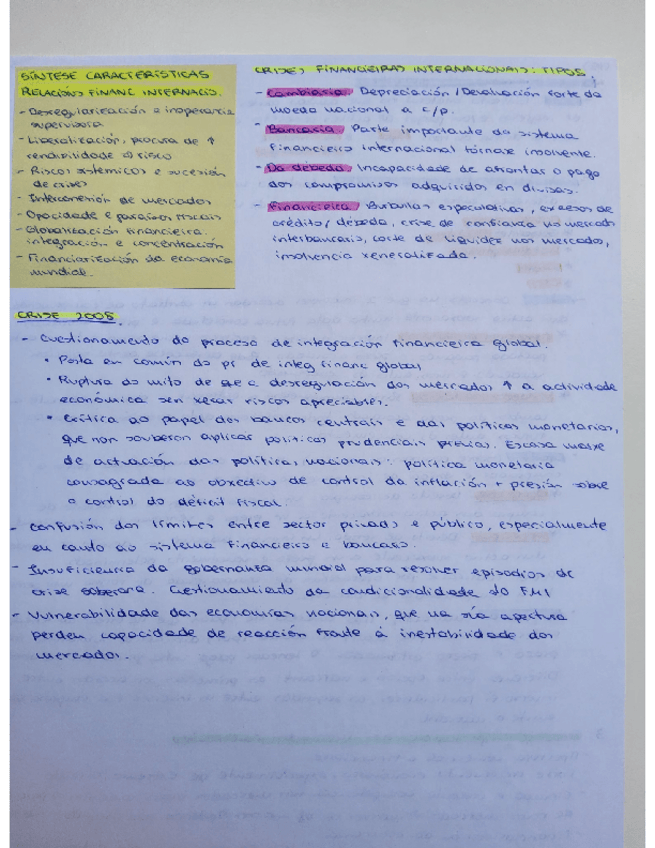 SÍNTESE CARACTERÍSTICAS
RELACIÓNS FINANC INTERNACIO.
- Desregularización e inoperancia
supervisora
- Liberalización, procura de ↑
rendibilidade a risco
- Riscos sistémicos e sucesión
de crises
- Interconexión de mercados
- Opacidade e paraísos fiscais
- Globalización financieira:
integración e concentración
- Financiarización da economía
mundial.
CRISES FINANCIEIRAS INTERNACIONAIS: TIPOS.
- Cambiaria: Depreciación/Devaluación forte da
moeda nacional a c/p.
- Bancaria: Parte importante do sistema
financieiro internacional tórnase insolvente.
- Da débeda: Incapacidade de afrontar o pago
dos compromisos adquiridos en divisas.
- Financieira: Burbullas especulativas, excesos de
crédito/débeda, crise de confianza no mercado
interbancario, corte de liquidez nos mercados,
insolvencia xeneralizada.
CRISE 2008.
- Cuestionamento do proceso de integración financieira global.
• Posta en común do pr de integ financ global
• Ruptura do mito de que a desregulación dos mercados ↑ a actividade
económica sen xerar riscos apreciables.
• Crítica ao papel dos bancos centrais e das políticas monetarias,
que non souberon aplicar políticas prudenciais previas. Escasa marxe
de actuación das políticas nacionais: política monetaria
consagrada ao obxectivo de control da inflación + presión sobre
o control do déficit fiscal.
- Confusión dos límites entre sector privado e público, especialmente
en canto ao sistema financieiro e bancario.
- Insuficiencia da gobernanza mundial para resolver episodios de
crise soberana. Cuestionamiento da condicionalidade do FMI
- Vulnerabilidade das economías nacionais, que na súa apertura
perden capacidade de reacción fronte á inestabilidade dos
mercados.